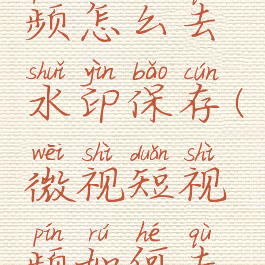 频怎么去
shuǐ yìn bǎo cún
水印保存(
wēi shì duǎn shì
微视短视
pín rú hé qù
频如何去